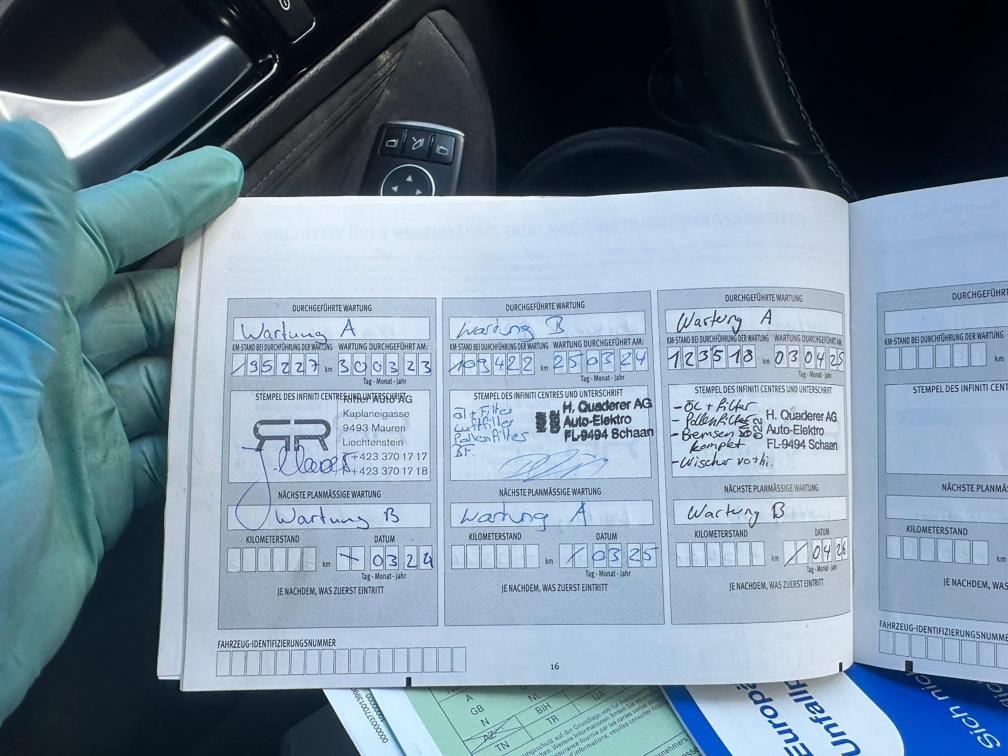 DURCHGEFÜHRTE WARTUNG
Wartung A
KM-STAND BEI DURCHFÜHRUNG DER WARTUNG WARTUNG DURCHGEFÜHRT AM:
195227 km 300323
Tag - Monat - Jahr
STEMPEL DES INFINITI CENTRES UND UNTERSCHRIFT
Ritter Auto AG
Kaplaneigasse
9493 Mauren
Liechtenstein
+423 370 17 17
+423 370 17 18
NÄCHSTE PLANMÄSSIGE WARTUNG
Wartung B
KILOMETERSTAND DATUM
km 0324
Tag - Monat - Jahr
JE NACHDEM, WAS ZUERST EINTRITT
DURCHGEFÜHRTE WARTUNG
Wartung B
KM-STAND BEI DURCHFÜHRUNG DER WARTUNG WARTUNG DURCHGEFÜHRT AM:
109422 km 250324
Tag - Monat - Jahr
STEMPEL DES INFINITI CENTRES UND UNTERSCHRIFT
Öl + Filter
Luftfilter
Pollenfilter
BF.
H. Quaderer AG
Auto-Elektro
FL-9494 Schaan
NÄCHSTE PLANMÄSSIGE WARTUNG
Wartung A
KILOMETERSTAND DATUM
km / 0325
Tag - Monat - Jahr
JE NACHDEM, WAS ZUERST EINTRITT
DURCHGEFÜHRTE WARTUNG
Wartung A
KM-STAND BEI DURCHFÜHRUNG DER WARTUNG WARTUNG DURCHGEFÜHRT AM:
123518 km 030425
Tag - Monat - Jahr
STEMPEL DES INFINITI CENTRES UND UNTERSCHRIFT
- Öl + Filter
- Pollenfilter
- Bremsen
komplet
- Wischer vo+hi.
H. Quaderer AG
Auto-Elektro
FL-9494 Schaan
NÄCHSTE PLANMÄSSIGE WARTUNG
Wartung B
KILOMETERSTAND DATUM
km / 0426
Tag - Monat - Jahr
JE NACHDEM, WAS ZUERST EINTRITT
FAHRZEUG-IDENTIFIZIERUNGSNUMMER
16
DURCHGEFÜHRT
KM-STAND BEI DURCHFÜHRUNG DER WARTUNG
km
STEMPEL DES INFINITI CEN
NÄCHSTE PLANMÄS
KILOMETERSTAND
km
JE NACHDEM, WAS
FAHRZEUG-IDENTIFIZIERUNGSNUMM
GB
N
TN
BIH
TR
UA
Europä
Unfallp
Sich nich